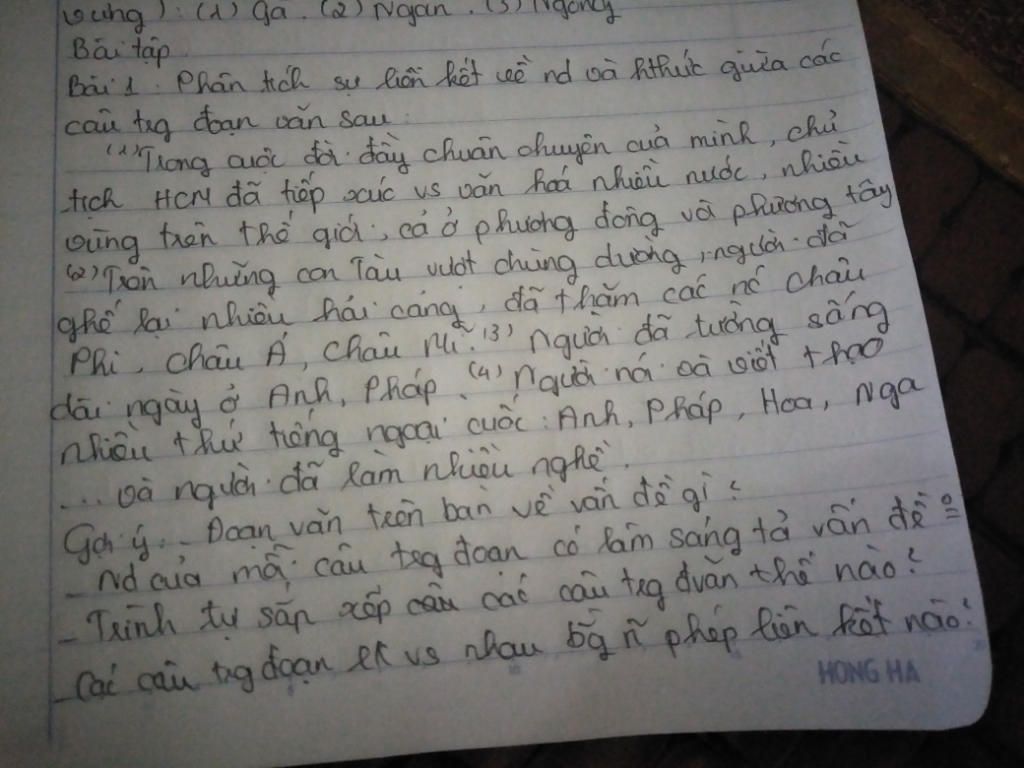 vưng) : (1) Gà . (2) Ngan . (3) Ngỗng
Bài tập
Bài 1. Phân tích sự liên kết về nd và hthức giữa các
câu trg đoạn văn sau:
(1) Trong cuộc đời đầy chuân chuyên của mình, chủ
tịch HCM đã tiếp xúc vs văn hoá nhiều nước, nhiều
vùng trên thế giới, cả ở phương đông và phương tây
(2) Trên những con Tàu vượt chùng dương, người đã
ghé lại nhiều hải cảng, đã thăm các nc châu
Phi, châu Á, châu Mĩ. (3) Người đã từng sống
dài ngày ở Anh, Pháp. (4) Người nói và viết thạo
nhiều thứ tiếng ngoại cuốc: Anh, Pháp, Hoa, Nga
... và người đã làm nhiều nghề.
Gợi ý - Đoạn văn trên bàn về vấn đề gì?
- Nd của mỗi câu trg đoạn có làm sáng tỏ vấn đề
- Trình tự sắp xếp các câu trg đvăn thế nào?
- Các câu trg đoạn lk vs nhau bg n~ phép liên kết nào?
HONG HA